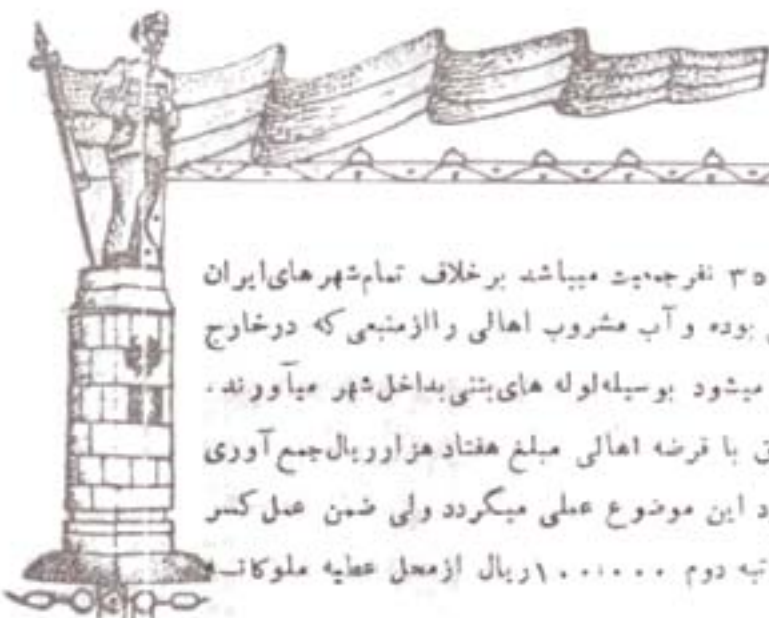 ۳۵ نفر جمعیت میباشد برخلاف تمام شهرهای ایران
بوده و آب مشروب اهالی را از منبعی که درخارج
میشود بوسیله لوله های بتنی بداخل شهر میآورند.
با قرضه اهالی مبلغ هفتاد هزار ریال جمع آوری
این موضوع عملی میگردد ولی ضمن عمل کسر
دوم ۱۰۰،۰۰۰ ریال ازمحل عطیه ملوکانه